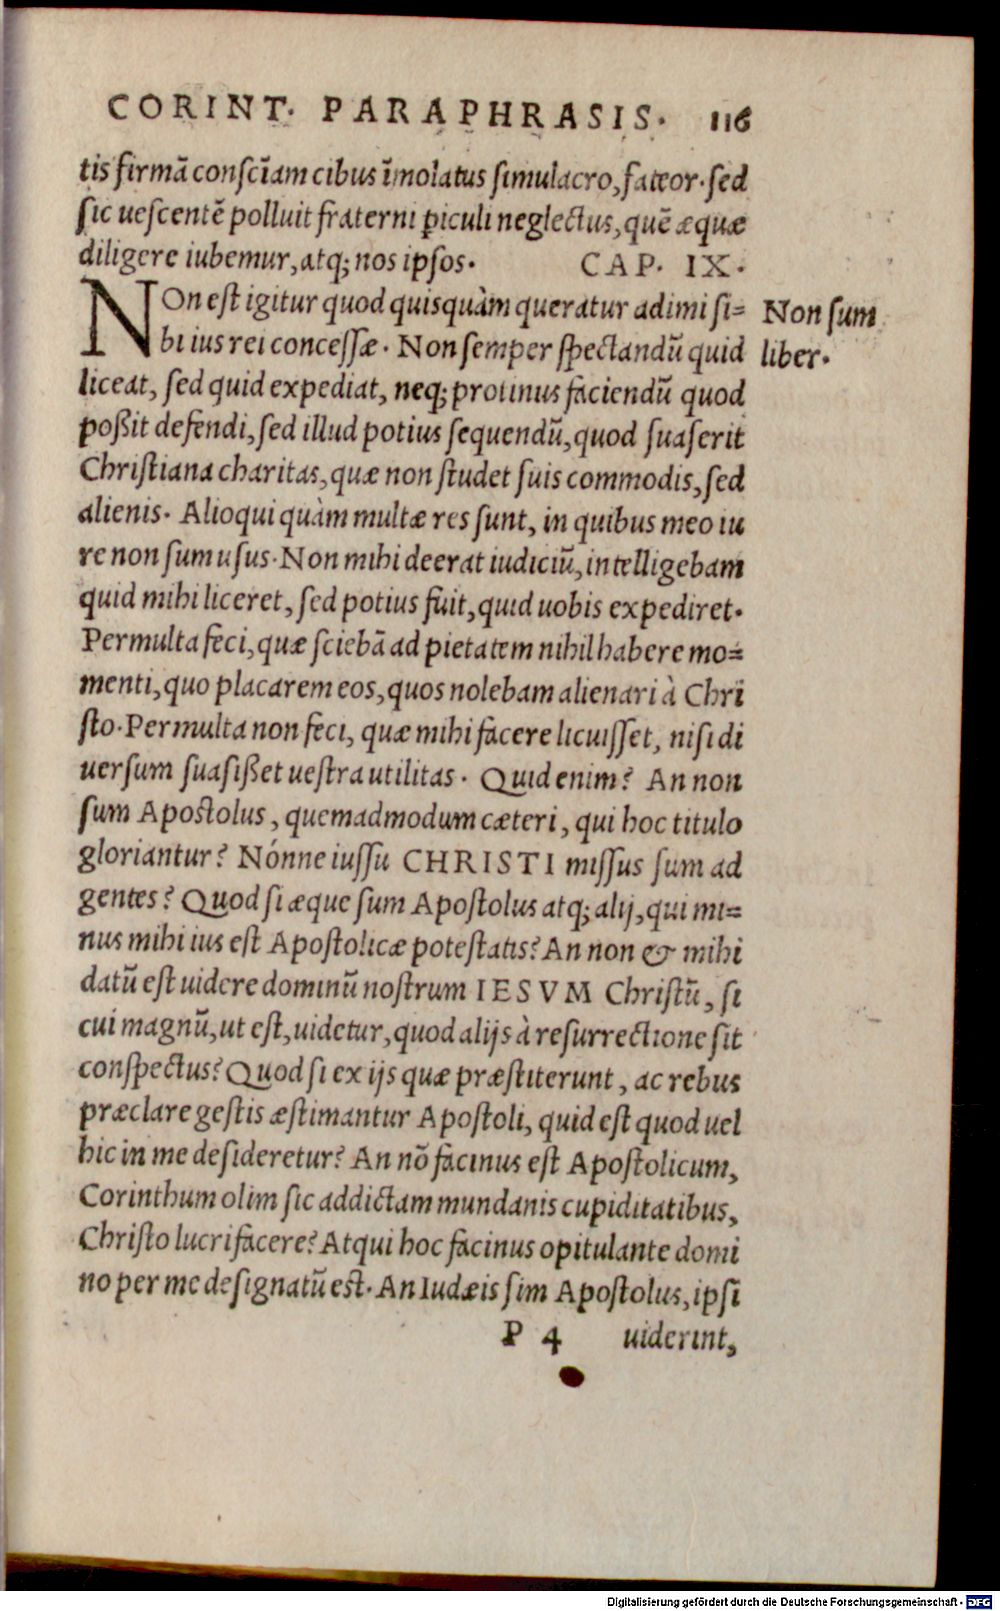 CORINT. PARAPHRASIS. 116
tis firmā conscīam cibus īmolatus simulacro, fateor. sed
sic uescentē polluit fraterni ꝑiculi neglectus, quē æquæ
diligere iubemur, atq; nos ipsos. CAP. IX.
NOn est igitur quod quisquàm queratur adimi si=
bi ius rei concessæ. Non semper spectandū quid
liceat, sed quid expediat, neq; protinus faciendū quod
poßit defendi, sed illud potius sequendū, quod suaserit
Christiana charitas, quæ non studet suis commodis, sed
alienis. Alioqui quàm multæ res sunt, in quibus meo iu
re non sum usus. Non mihi deerat iudiciū, intelligebam
quid mihi liceret, sed potius fuit, quid uobis expediret.
Permulta feci, quæ sciebā ad pietatem nihil habere mo=
menti, quo placarem eos, quos nolebam alienari à Chri
sto. Permulta non feci, quæ mihi facere licuisset, nisi di
uersum suasißet uestra utilitas. Quid enim? An non
sum Apostolus, quemadmodum cæteri, qui hoc titulo
gloriantur? Nónne iussu CHRISTI missus sum ad
gentes? Quod si æque sum Apostolus atq; alij, qui mi=
nus mihi ius est Apostolicæ potestatis? An non & mihi
datū est uidere dominū nostrum IESVM Christū, si
cui magnū, ut est, uidetur, quod alijs à resurrectione sit
conspectus? Quod si ex ijs quæ præstiterunt, ac rebus
præclare gestis æstimantur Apostoli, quid est quod uel
hic in me desideretur? An nō facinus est Apostolicum,
Corinthum olim sic addictam mundanis cupiditatibus,
Christo lucrifacere? Atqui hoc facinus opitulante domi
no per me designatū est. An Iudæis sim Apostolus, ipsi
P 4 uiderint,
Non sum
liber.
Digitalisierung gefördert durch die Deutsche Forschungsgemeinschaft - DFG